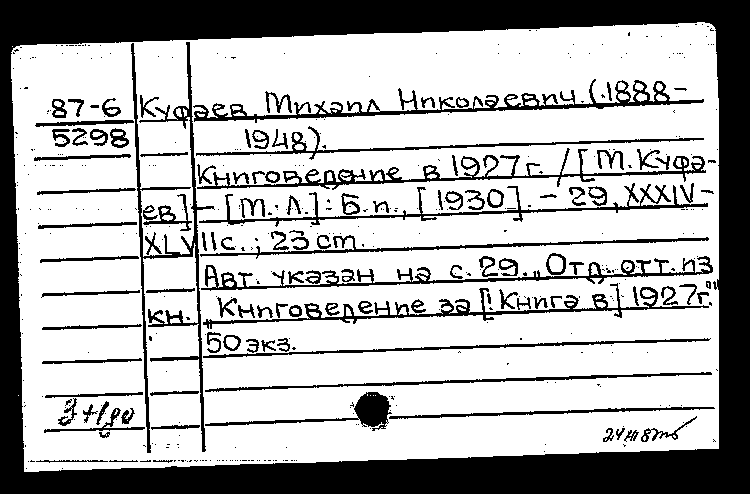 87-6 Куфаев, Михаил Николаевич (1888-
5298 1948).
Книговедение в 1927г. / [М. Куфа-
ев] - [М.; Л.]: Б.и., [1930]. - 29, XXXIV-
XLVIIс.; 23 cm.
Авт. указан на с. 29. „Отд. отт. из
кн. „Книговедение за [! Книга в] 1927г.""
50 экз.